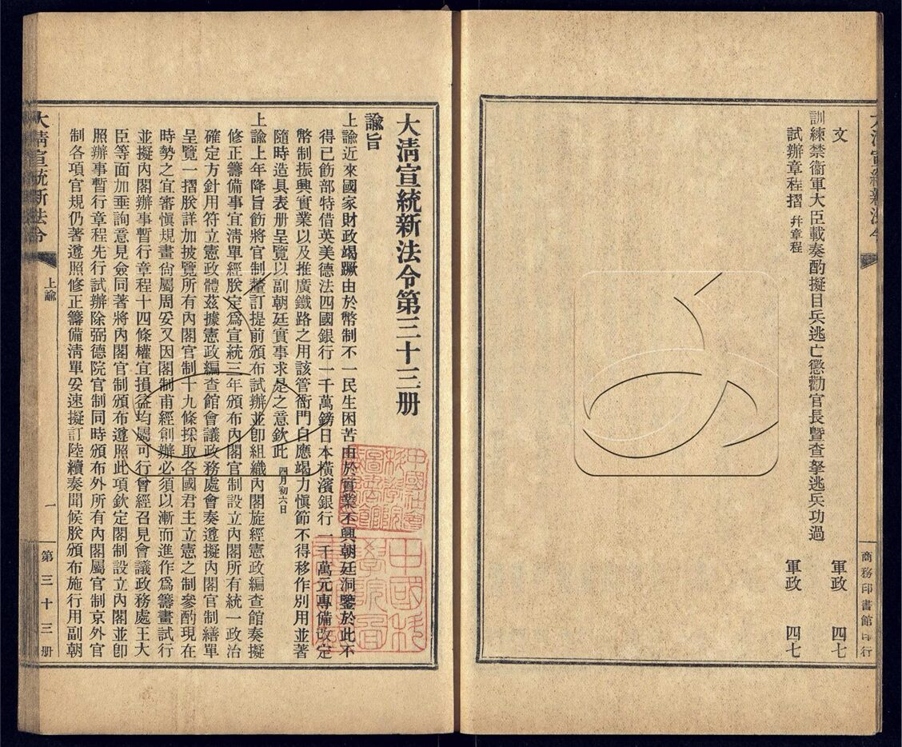 文
訓練禁衞軍大臣載奏酌擬目兵逃亡懲勸官長暨查拏逃兵功過 軍政 四七
試辦章程摺 幷章程 軍政 四七
商務印書館印行
大清宣統新法令
大清宣統新法令第三十三册
諭旨
上諭近來國家財政竭蹶由於幣制不一民生困苦由於實業不興朝廷洞鑒於此不
得已飭部特借英美德法四國銀行一千萬鎊日本橫濱銀行一千萬元專備改定
幣制振興實業以及推廣鐵路之用該管衙門自應竭力愼節不得移作別用並著
隨時造具表册呈覽以副朝廷實事求是之意欽此 四月初六日
上諭上年降旨飭將官制釐訂提前頒布試辦並卽組織內閣旋經憲政編查館奏擬
修正籌備事宜淸單經朕定爲宣統三年頒布內閣官制設立內閣所有統一政治
確定方針用符立憲政體茲據憲政編查館會議政務處會奏遵擬內閣官制繕單
呈覽一摺朕詳加披覽所有內閣官制十九條採取各國君主立憲之制參酌現在
時勢之宜審愼規畫尙屬周妥又因閣制甫經創辦必須以漸而進作爲籌畫試行
並擬內閣辦事暫行章程十四條權宜損益均屬可行曾經召見會議政務處王大
臣等面加垂詢意見僉同著將內閣官制頒布遵照此項欽定閣制設立內閣並卽
照辦事暫行章程先行試辦除弼德院官制同時頒布外所有內閣屬官制京外官
制各項官規仍著遵照修正籌備淸單妥速擬訂陸續奏聞候朕頒布施行用副朝
大清宣統新法令 上諭 一 第三十三册